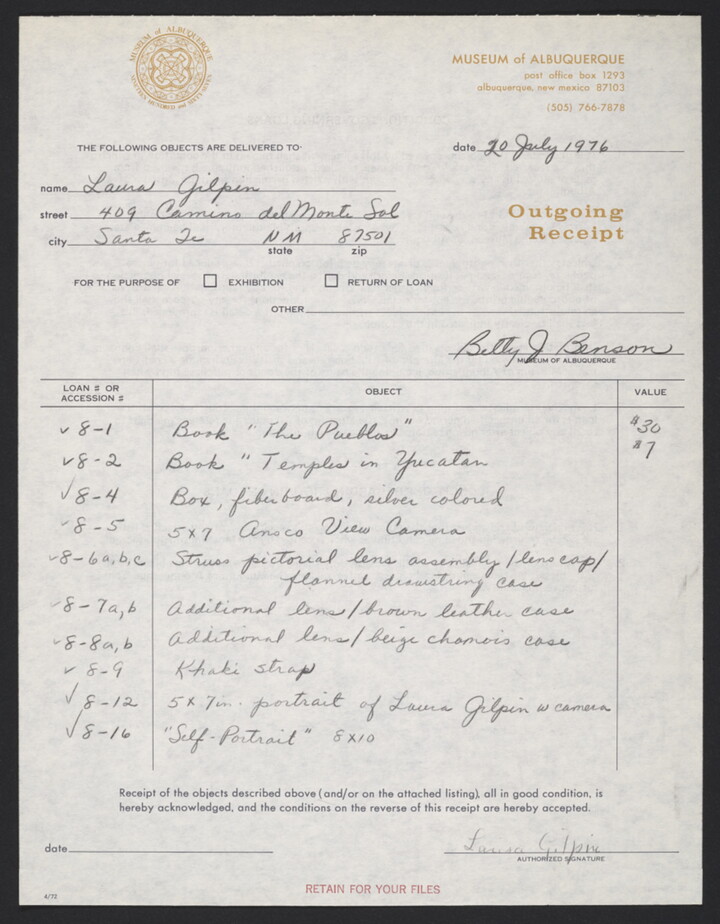 MUSEUM of ALBUQUERQUE
SEVENTEEN HUNDRED and SIX
MUSEUM of ALBUQUERQUE
post office box 1293
albuquerque, new mexico 87103
(505) 766-7878
THE FOLLOWING OBJECTS ARE DELIVERED TO:
date 20 July 1976
name Laura Gilpin
street 409 Camino del Monte Sol
Outgoing
Receipt
city Santa Fe NM 87501
state zip
FOR THE PURPOSE OF EXHIBITION RETURN OF LOAN
OTHER
Betty J Benson
MUSEUM OF ALBUQUERQUE
LOAN # OR
ACCESSION # OBJECT VALUE
✓ 8-1 Book "The Pueblos" $30
✓ 8-2 Book "Temples in Yucatan $7
✓ 8-4 Box, fiberboard, silver colored
✓ 8-5 5x7 Ansco View Camera
✓ 8-6a,b,c Struss pictorial lens assembly/lens cap/
flannel drawstring case
✓ 8-7a,b Additional lens/brown leather case
✓ 8-8a,b Additional lens/beige chamois case
✓ 8-9 Khaki strap
✓ 8-12 5x7in. portrait of Laura Gilpin w camera
✓ 8-16 "Self-Portrait" 8x10
Receipt of the objects described above (and/or on the attached listing), all in good condition, is
hereby acknowledged, and the conditions on the reverse of this receipt are hereby accepted.
date Laura Gilpin
AUTHORIZED SIGNATURE
RETAIN FOR YOUR FILES
4/72